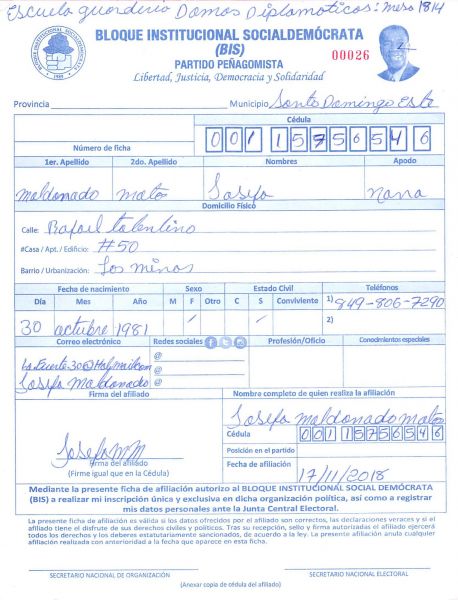 Escuela guarderia Damas Diplomaticas: mesa 1814
BLOQUE INSTITUCIONAL SOCIALDEMÓCRATA
(BIS)
00026
PARTIDO PEÑAGOMISTA
Libertad, Justicia, Democracia y Solidaridad
Provincia Municipio Santo Domingo Este
Cédula
Número de ficha 001 1575654 6
1er. Apellido 2do. Apellido Nombres Apodo
maldonado matos Josefa nana
Domicilio Físico
Calle: Rafael tolentino
#Casa / Apt. / Edificio: #50
Barrio / Urbanización: Los minas
Fecha de nacimiento Sexo Estado Civil Teléfonos
Día Mes Año M F Otro C S Conviviente 1) 849-806-7290
30 octubre 1981 / / 2)
Correo electrónico Redes sociales Profesión/Oficio Conocimientos especiales
@
@
Josefa maldonado @
Firma del afiliado Nombre completo de quien realiza la afiliación
Josefa maldonado matos
Cédula 001 1575654 6
Josefa M M
Firma del afiliado
(Firme igual que en la Cédula)
Posición en el partido
Fecha de afiliación 17/11/2018
Mediante la presente ficha de afiliación autorizo al BLOQUE INSTITUCIONAL SOCIAL DEMÓCRATA
(BIS) a realizar mi inscripción única y exclusiva en dicha organización política, así como a registrar
mis datos personales ante la Junta Central Electoral.
La presente ficha de afiliación es válida si los datos ofrecidos por el afiliado son correctos, las declaraciones veraces y si el
afiliado tiene el disfrute de sus derechos civiles y políticos. Tras su recepción, sello y firma autorizadas el afiliado ejercerá
todos los derechos y los deberes estatutariamente sancionados, de acuerdo a la ley. La presente afiliación anula cualquier
afiliación realizada con anterioridad a la fecha que aparece en esta ficha.
SECRETARIO NACIONAL DE ORGANIZACIÓN SECRETARIO NACIONAL ELECTORAL
(Anexar copia de cédula del afiliado)